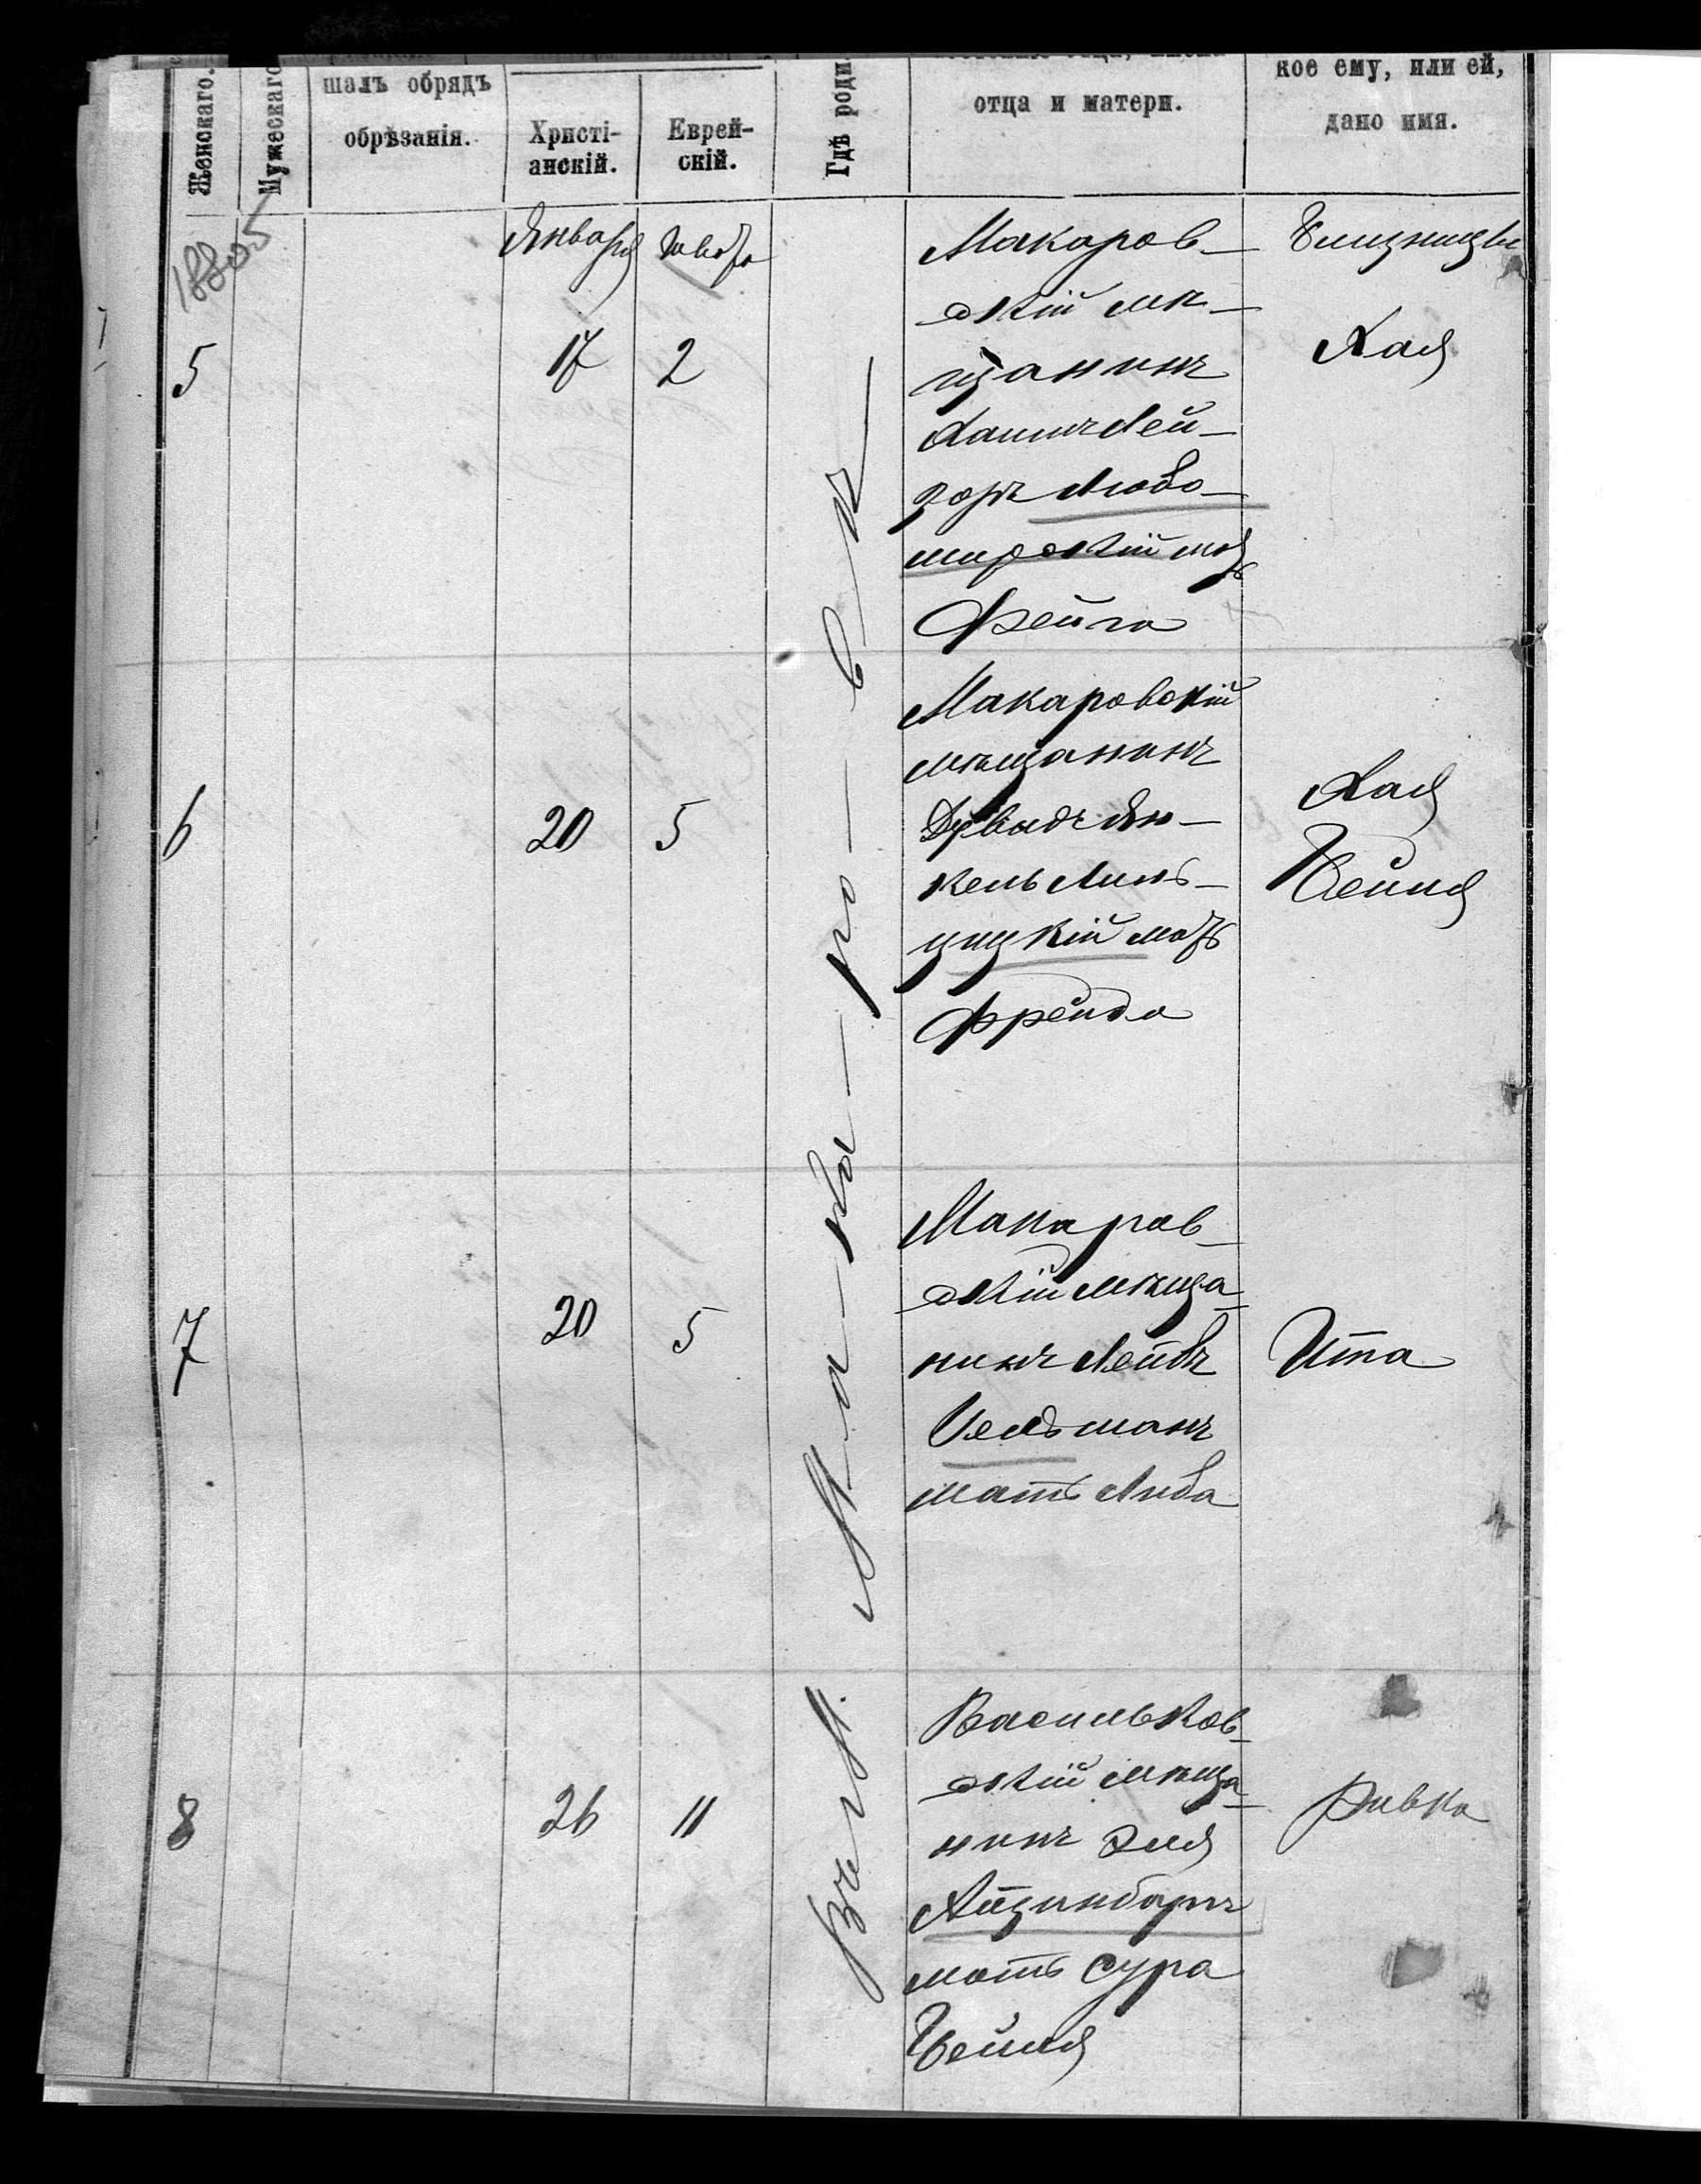 Женскаго.
Мужескаго
шалъ обрядъ
обрѣзанія.
Христі-
анскій.
Еврей-
скій.
Гдѣ роди
отца и матери.
кое ему, или ей,
дано имя.
1880
5
Января
17
2
Макаров-
скій мѣ-
щанинъ
Хаимъ Лей-
зоръ Любо-
мирскій мать
Фейга
Хая
Въ М. Ма-ка-ро-в-ѣ
6
20
5
Макаровскій
мѣщанинъ
Дувидъ Ян-
кель Липь-
цицкій мать
Фрейда
Хая
Бейля
7
20
5
Макаров-
скій мѣща-
нинъ Лейбъ
Гельманъ
мать Либа
Ита
8
26
11
Васильков-
скій мѣща-
нинъ Эля
мать Сура
Бейля
Ривка